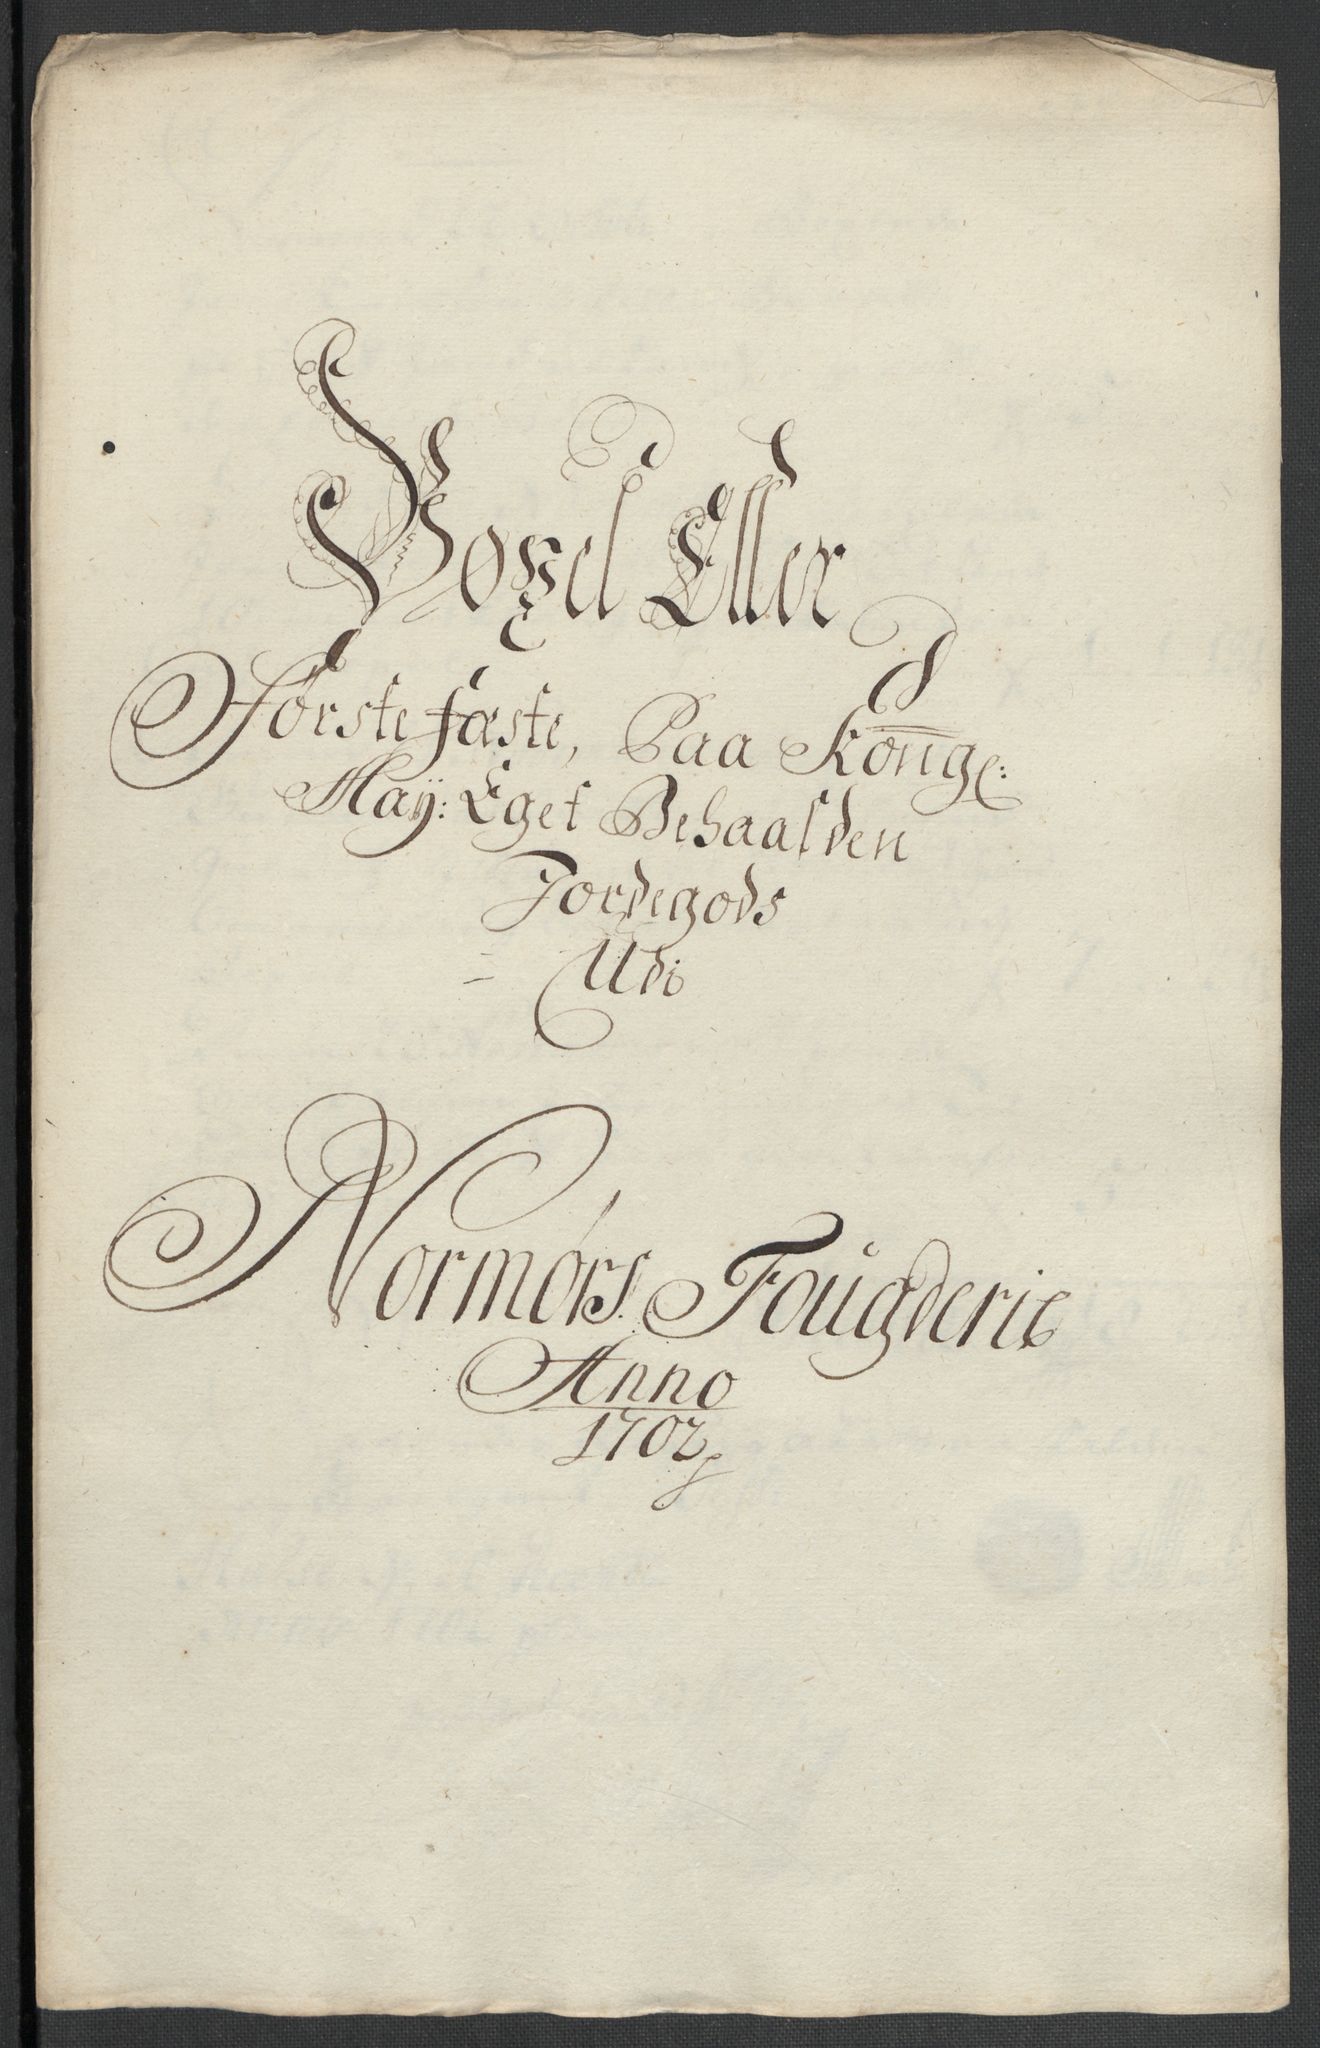 Boxel Eller
Første fæste, Paa Konge:
May: Eget Behaalden
Jordegods
Udi
Normørs Fougderie
Anno
1702